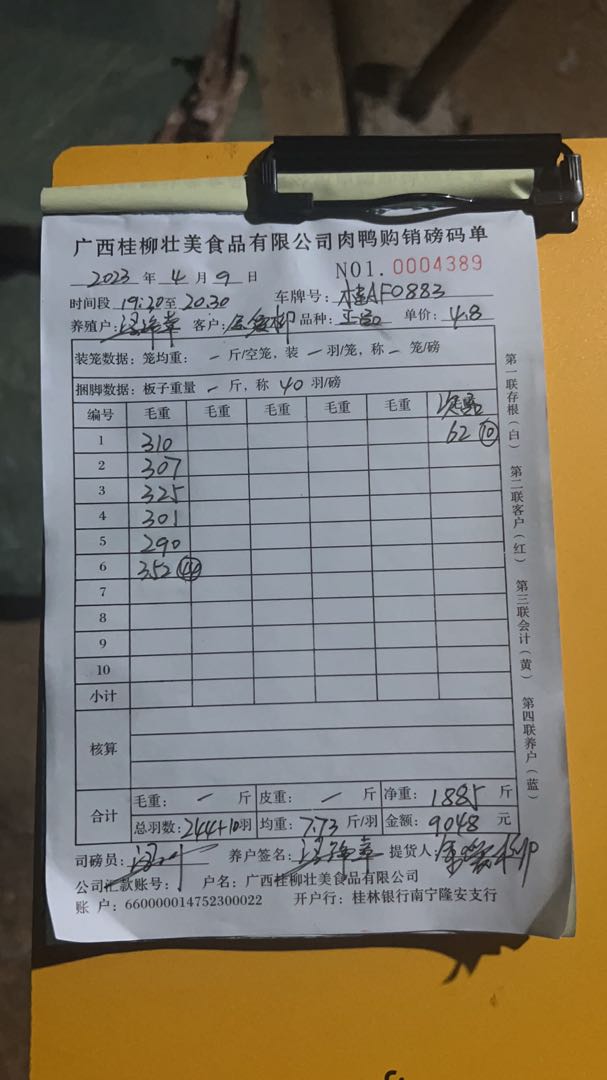 广西桂柳壮美食品有限公司肉鸭购销磅码单
2023 年 4 月 9 日 NO1. 0004389
时间段 19:20至 20:30 车牌号: 桂AF0883
养殖户: 客户: 品种: 正品 单价: 4.8
装笼数据: 笼均重: — 斤/空笼, 装 — 羽/笼, 称 — 笼/磅
捆脚数据: 板子重量 — 斤, 称 40 羽/磅
编号 毛重 毛重 毛重 毛重 毛重 次品
1 310 62 ⑩
2 307
3 325
4 301
5 290
6 352 ㊹
7
8
9
10
小计
核算
合计
毛重: — 斤 皮重: — 斤 净重: 1885 斤
总羽数: 244+10羽 均重: 7.73 斤/羽 金额: 9048 元
司磅员: 养户签名: 提货人:
公司汇款账号: 户名: 广西桂柳壮美食品有限公司
账 户: 660000014752300022 开户行: 桂林银行南宁隆安支行
第一联存根(白) 第二联客户(红) 第三联会计(黄) 第四联养户(蓝)